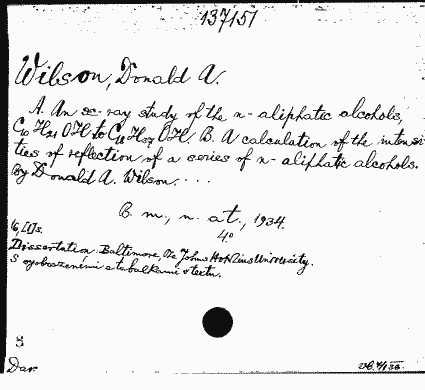 137151
Wilson, Donald A.
A. An x-ray study of the n-aliphatic alcohols,
C10 H21 OH to C18 H37 OH. B. A calculation of the intensi-
ties of reflection of a series of n-aliphatic alcohols.
By Donald A. Wilson. ...
B. m., n. at., 1934.
4°
s.
Dissertation. Baltimore, The Johns Hopkins University.
S vyobrazeními a tabulkami v textu.
S
Dar.